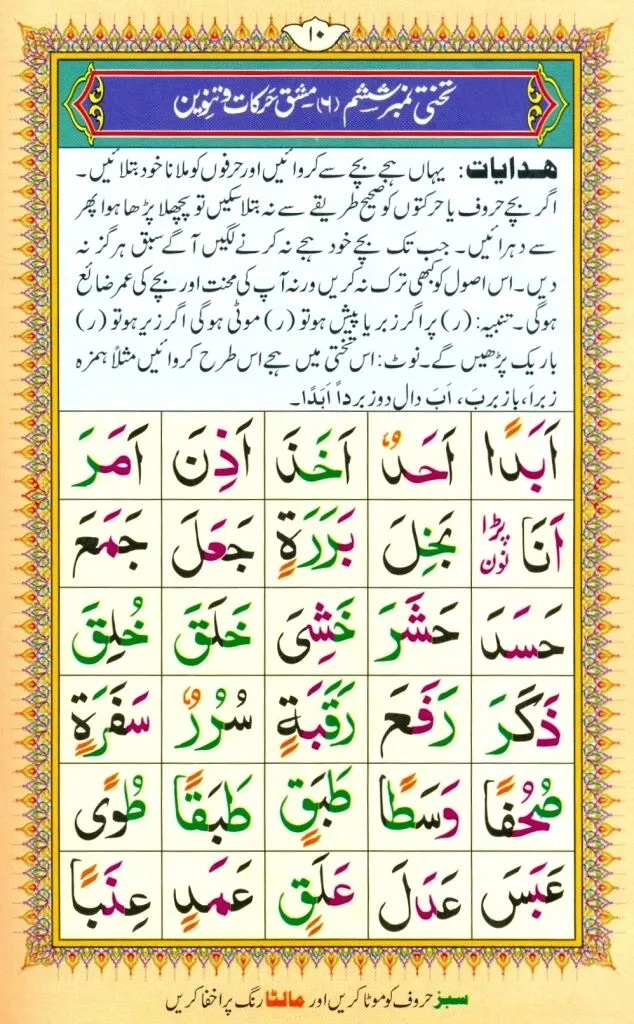 ۱۰
تختی نمبر ششم (۶) مشق حرکات و تنوین
ھدایات: یہاں ہجے بچے سے کروائیں اور حرفوں کو ملانا خود بتلائیں۔
اگر بچے حروف یا حرکتوں کو صحیح طریقے سے نہ بتلا سکیں تو پچھلا پڑھا ہوا پھر
سے دہرائیں۔ جب تک بچے خود ہجے نہ کرنے لگیں آگے سبق ہرگز نہ
دیں۔ اس اصول کو کبھی ترک نہ کریں ورنہ آپ کی محنت اور بچے کی عمر ضائع
ہوگی۔ تنبیہ: (ر) پر اگر زبر یا پیش ہو تو (ر) موٹی ہوگی اگر زیر ہو تو (ر)
باریک پڑھیں گے۔ نوٹ: اس تختی میں ہجے اس طرح کروائیں مثلاً ہمزہ
زبر اَ، با زبر بَ، اَبَ دال دو زبر داً اَبَدًا۔
اَبَدًا اَحَدٌ اَخَذَ اَذِنَ اَمَرَ
اَنَا بَخِلَ بَرَرَةٍ جَعَلَ جَمَعَ
حَسَدَ حَشَرَ خَشِیَ خَلَقَ خُلِقَ
ذَکَرَ رَفَعَ رَقَبَةٍ سُرُرٌ سَفَرَةٍ
صُحُفًا وَسَطًا طَبَقٍ طَبَقًا طُوًی
عَبَسَ عَدَلَ عَلَقٍ عَمَدٍ عِنَبًا
سبز حروف کو موٹا کریں اور مالٹا رنگ پر اخفا کریں